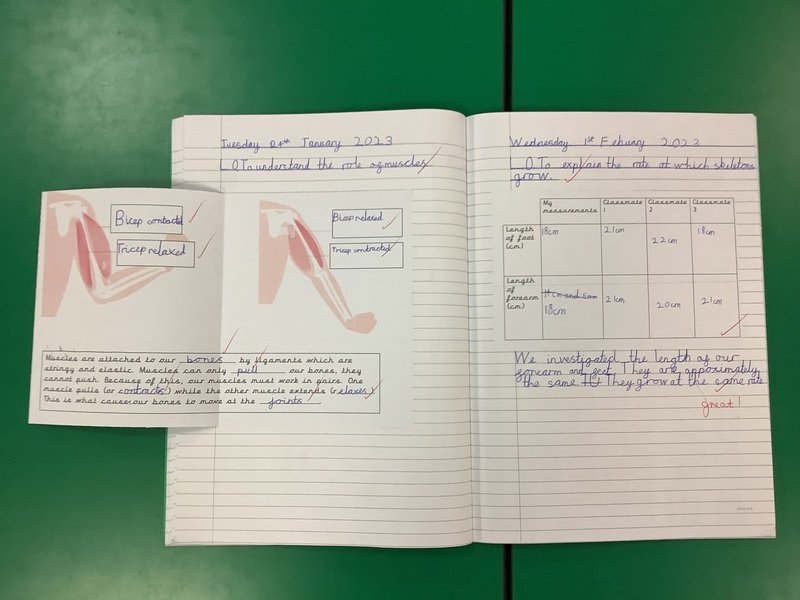 Tuesday 24th January 2023
LO To understand the role of muscles
Bicep contacted
Tricep relaxed
Bicep relaxed
Tricep contracted
Muscles are attached to our bones by ligaments which are
stringy and elastic. Muscles can only pull our bones, they
cannot push. Because of this, our muscles must work in pairs. One
muscle pulls (or contracts) while the other muscle extends (relaxes)
This is what causes our bones to move at the joints.
Wednesday 1st Febuary 2023
LO To explain the rate at which skeletons
grow.
My measurements Classmate 1 Classmate 2 Classmate 3
Length of foot (cm) 18cm 21cm 22cm 18cm
Length of forearm (cm) 18cm 21cm 20cm 21cm
We investigated the length of our
forearm and feet. They are approximately
the same. They grow at the same rate
great!